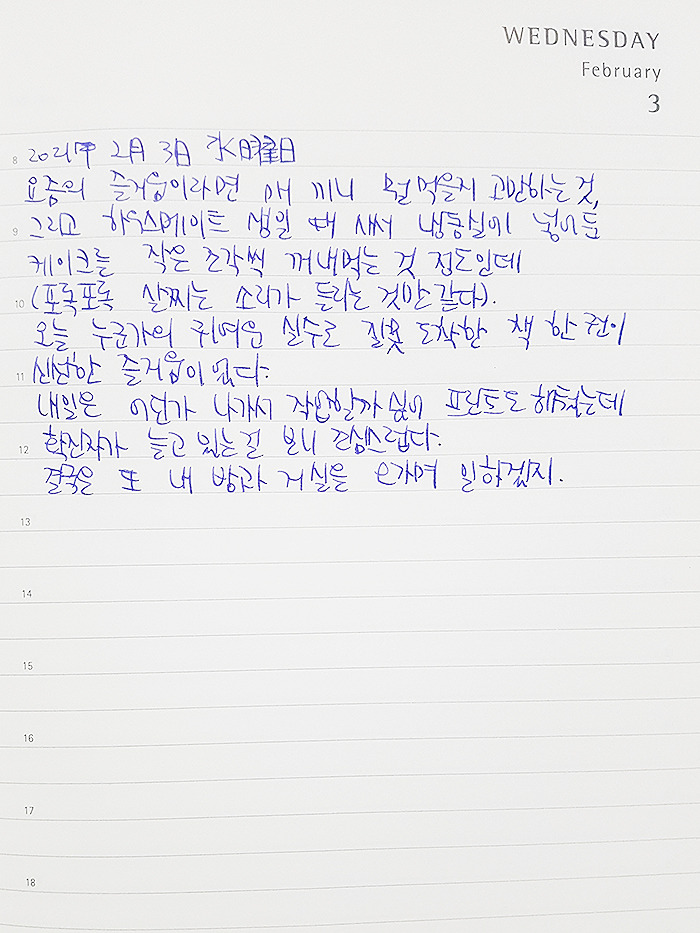 WEDNESDAY
February
3
8 2021年 2月 3日 水曜日
요즘의 즐거움이라면 매 끼니 뭘 먹을지 고민하는 것,
9 그리고 하우스메이트 생일 때 사서 냉동실에 넣어둔
케이크를 작은 조각씩 꺼내먹는 것 정도인데
10 (포독포독 살찌는 소리가 들리는 것만 같다).
오늘 누군가의 귀여운 실수로 잘못 도착한 책 한 권이
11 신선한 즐거움이 었다.
내일은 어딘가 나가서 작업할까 싶어 프린트도 해뒀는데
12 확진자가 늘고 있는걸 보니 조심스럽다.
결국은 또 내 방과 거실을 오가며 일하겠지.
13
14
15
16
17
18